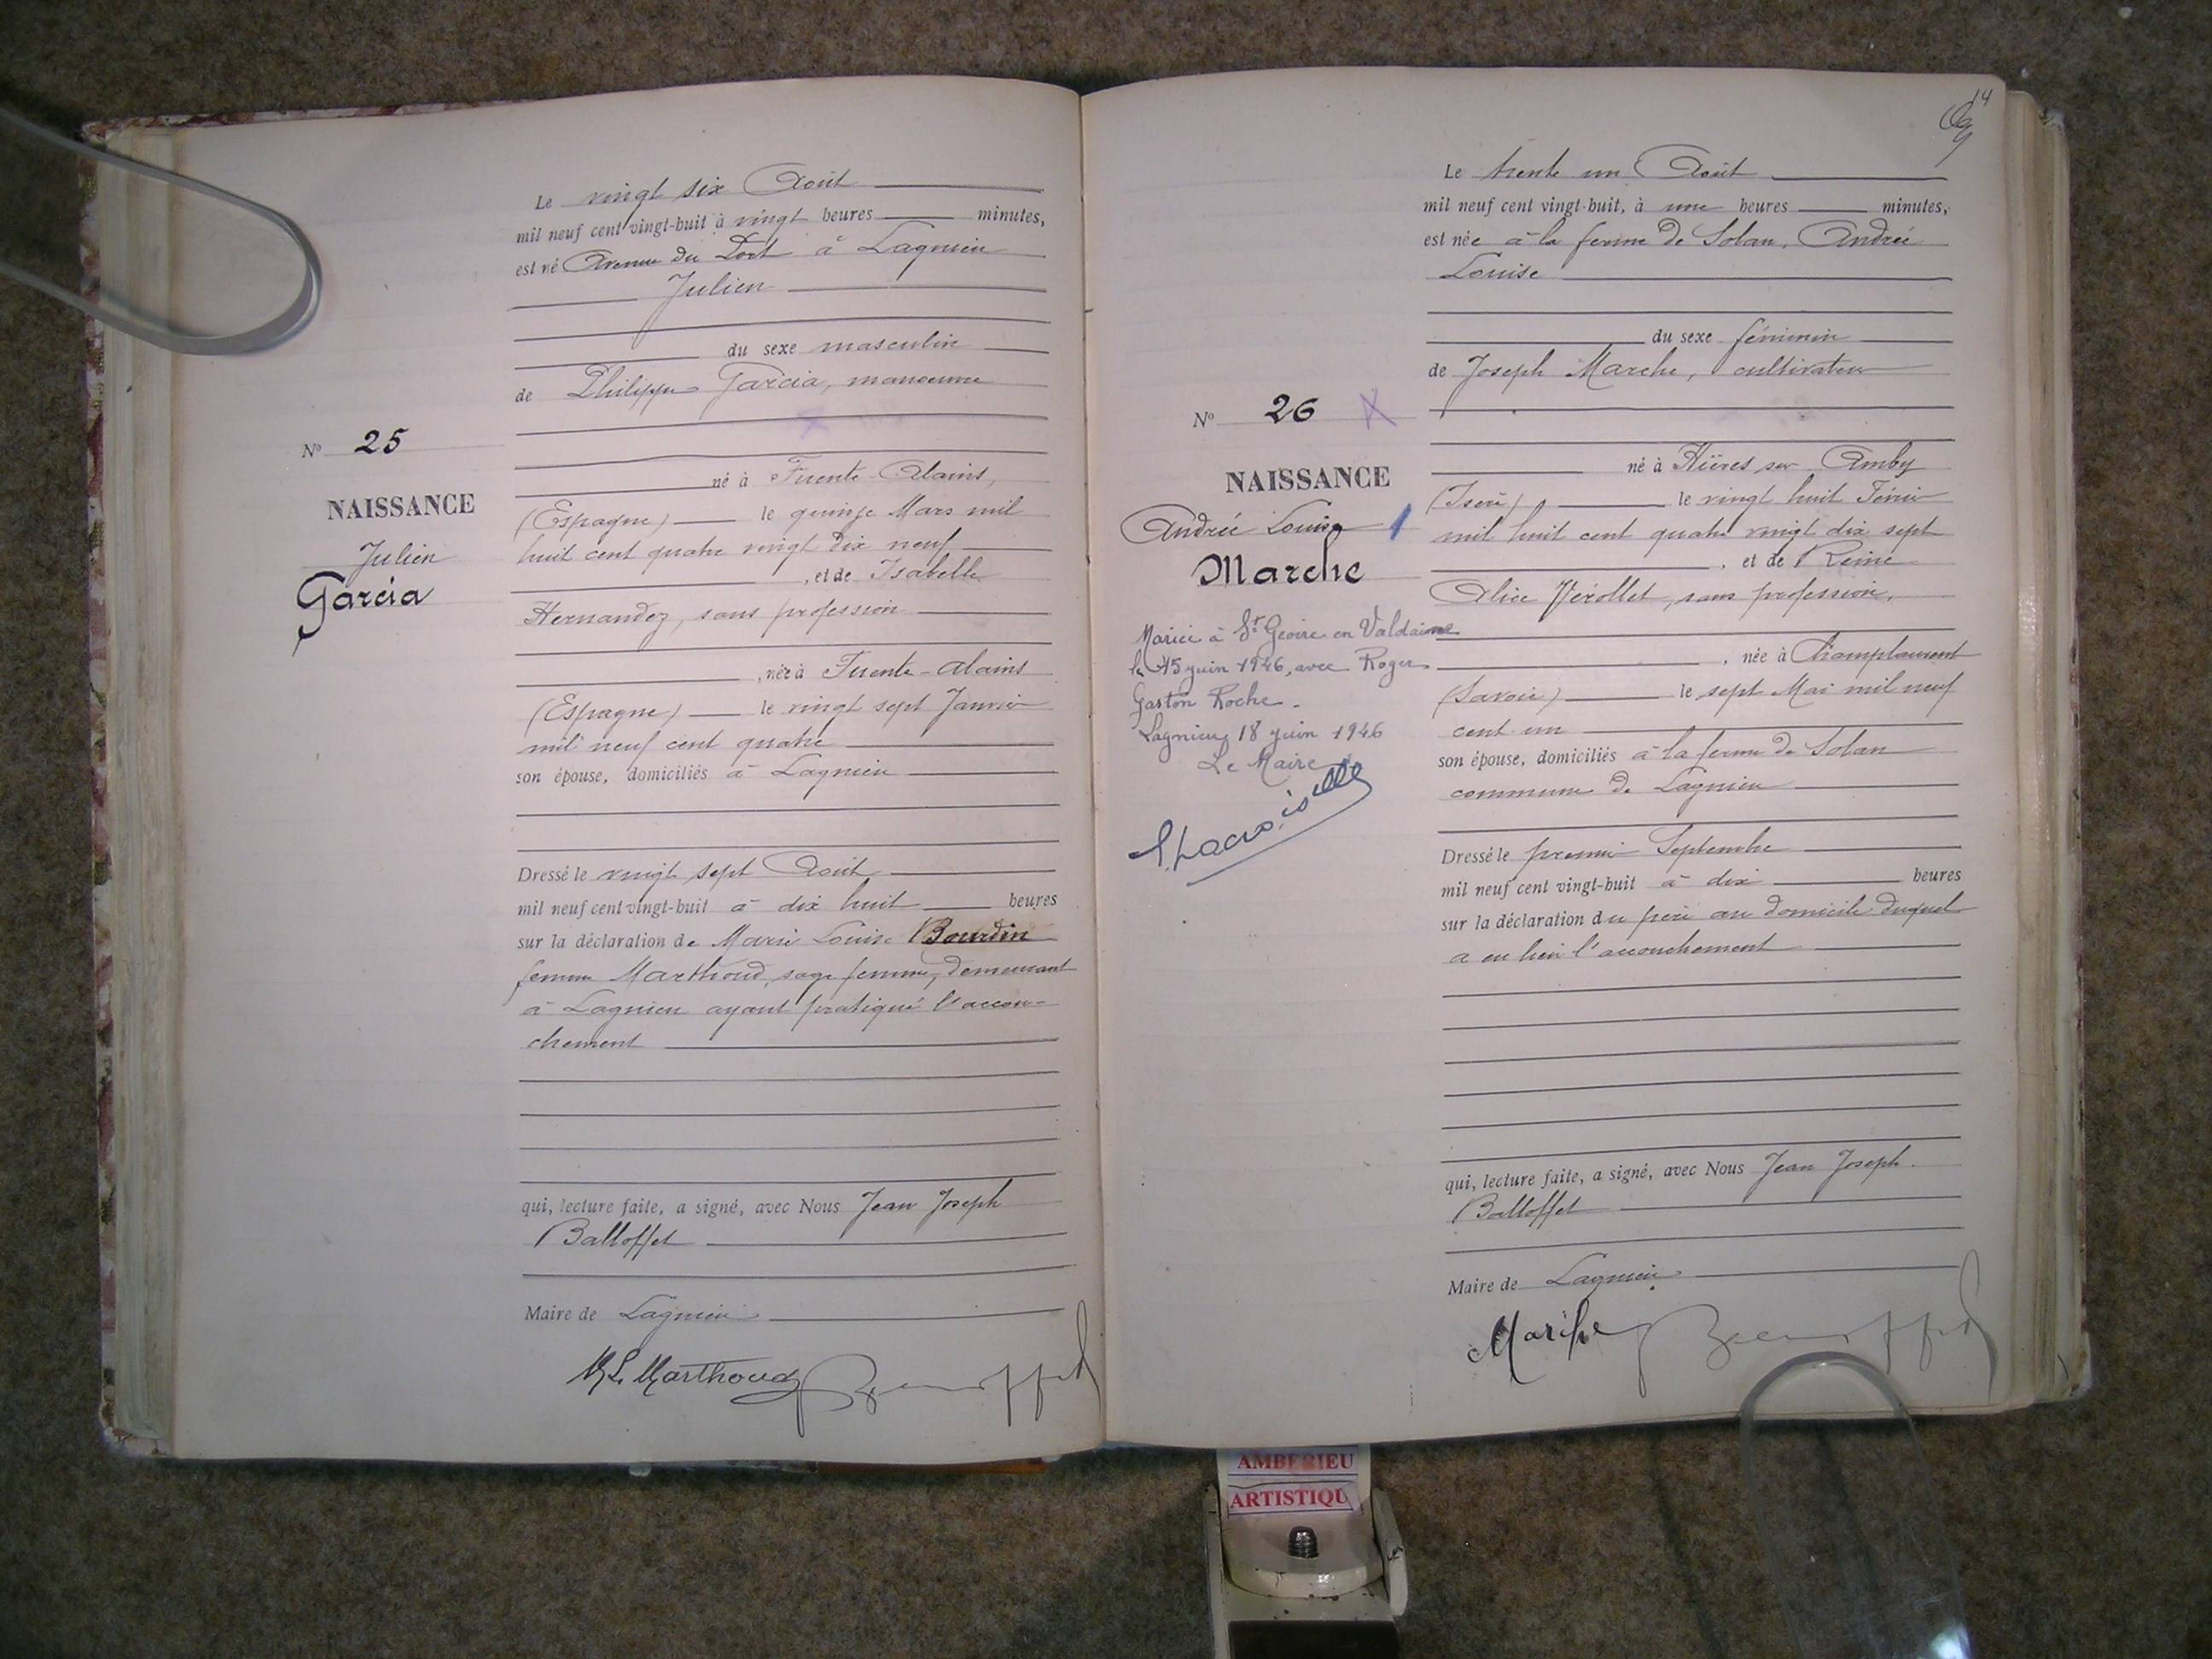 Le vingt six Août
mil neuf cent vingt-huit à vingt heures minutes,
est né Avenue du Port à Lagnieu
Julien
du sexe masculin
de Philippe Garcia, manoeuvre
né à Fuente-Alains,
(Espagne) le quinze Mars mil
huit cent quatre vingt dix neuf
, et de Isabelle
Hernandez, sans profession
, née à Fuente-Alains
(Espagne) le vingt sept Janvier
mil neuf cent quatre
son épouse, domiciliés à Lagnieu
Dressé le vingt sept Août
mil neuf cent vingt-huit à dix huit heures
sur la déclaration de Marie Louise Bourdin
femme Marthoud, sage femme, demeurant
à Lagnieu ayant pratiqué l'accou-
chement
qui, lecture faite, a signé, avec Nous Jean Joseph
Balloffet
Maire de Lagnieu
M L Marthoud
No 25
NAISSANCE
Julien
Garcia
14
Le trente un Août
mil neuf cent vingt-huit, à une heures minutes,
est née à la ferme de Solan, Andrée
Louise
du sexe féminin
de Joseph Marche, cultivateur
né à Hières sur Amby
(Isère) le vingt huit Février
mil huit cent quatre vingt dix sept
, et de Reine
Alice Vérollet, sans profession,
, née à Champlaurent
(Savoie) le sept Mai mil neuf
cent un
son épouse, domiciliés à la ferme de Solan
commune de Lagnieu
Dressé le premier Septembre
mil neuf cent vingt-huit à dix heures
sur la déclaration du père au domicile duquel
a eu lieu l'accouchement
qui, lecture faite, a signé, avec Nous Jean Joseph
Balloffet
Maire de Lagnieu
Marche
No 26
NAISSANCE
Andrée Louise 1
Marche
Mariée à St Geoire en Valdaine
le 15 juin 1946, avec Roger
Gaston Roche.
Lagnieu, 18 juin 1946
Le Maire
AMBERIEU
ARTISTIQU